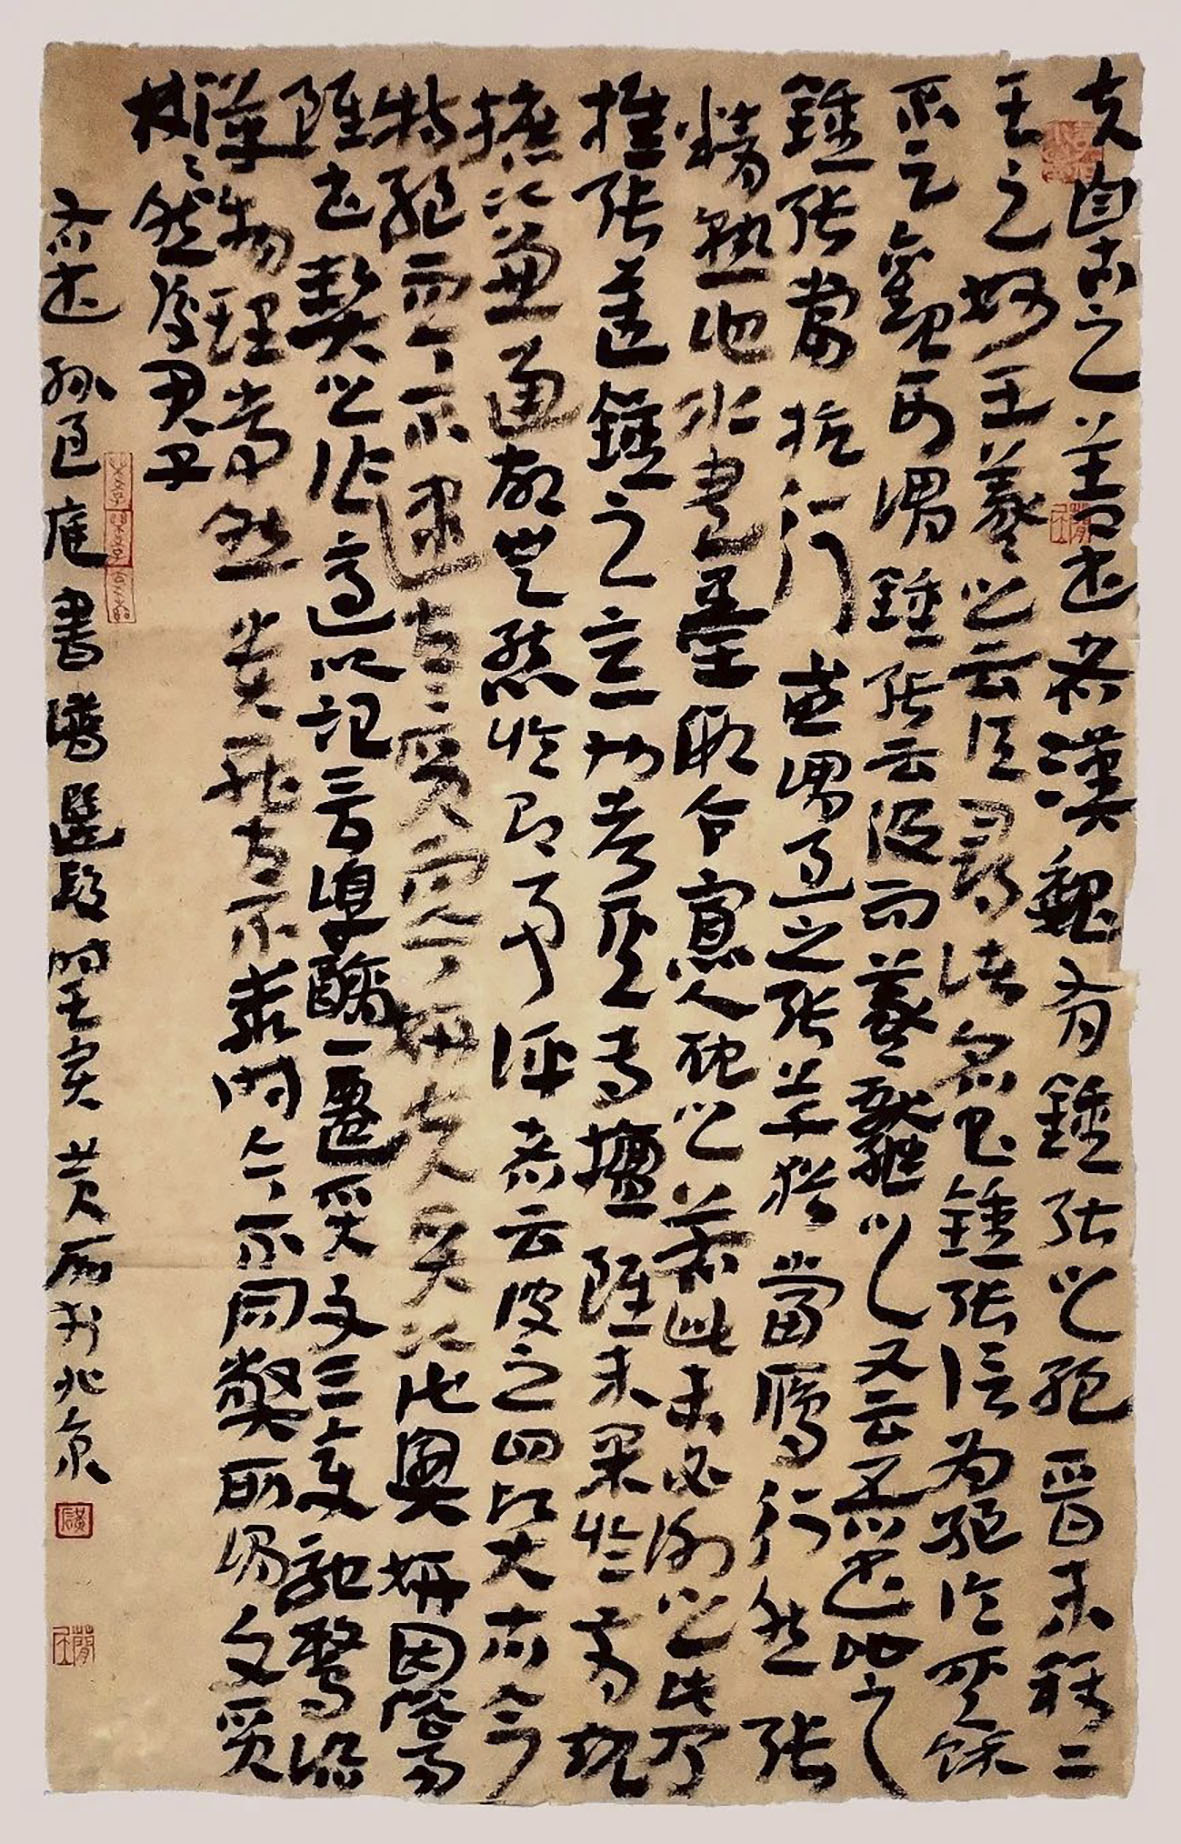 夫自古之善書者漢魏有鍾張之絕晉末稱二
王之妙王羲之云頃尋諸名書鍾張信為絕倫其餘
不足觀可謂鍾張云沒而羲獻繼之又云吾書比之
鍾張當抗行或謂過之張草猶當雁行然張
精熟池水盡墨假令寡人耽之若此未必謝之此乃
推張邁鍾之意也考其專擅雖未果於前規
摭以兼通故無慚於即事評者云彼之四賢古今
特絕而今不逮古古質而今妍夫質以代興妍因俗易
雖書契之作適以記言淳醨一遷質文三變馳騖沿
革物理常然貴能古不乖時今不同弊所謂文質
彬彬然後君子
孫過庭書譜選段時壬寅黃於北京